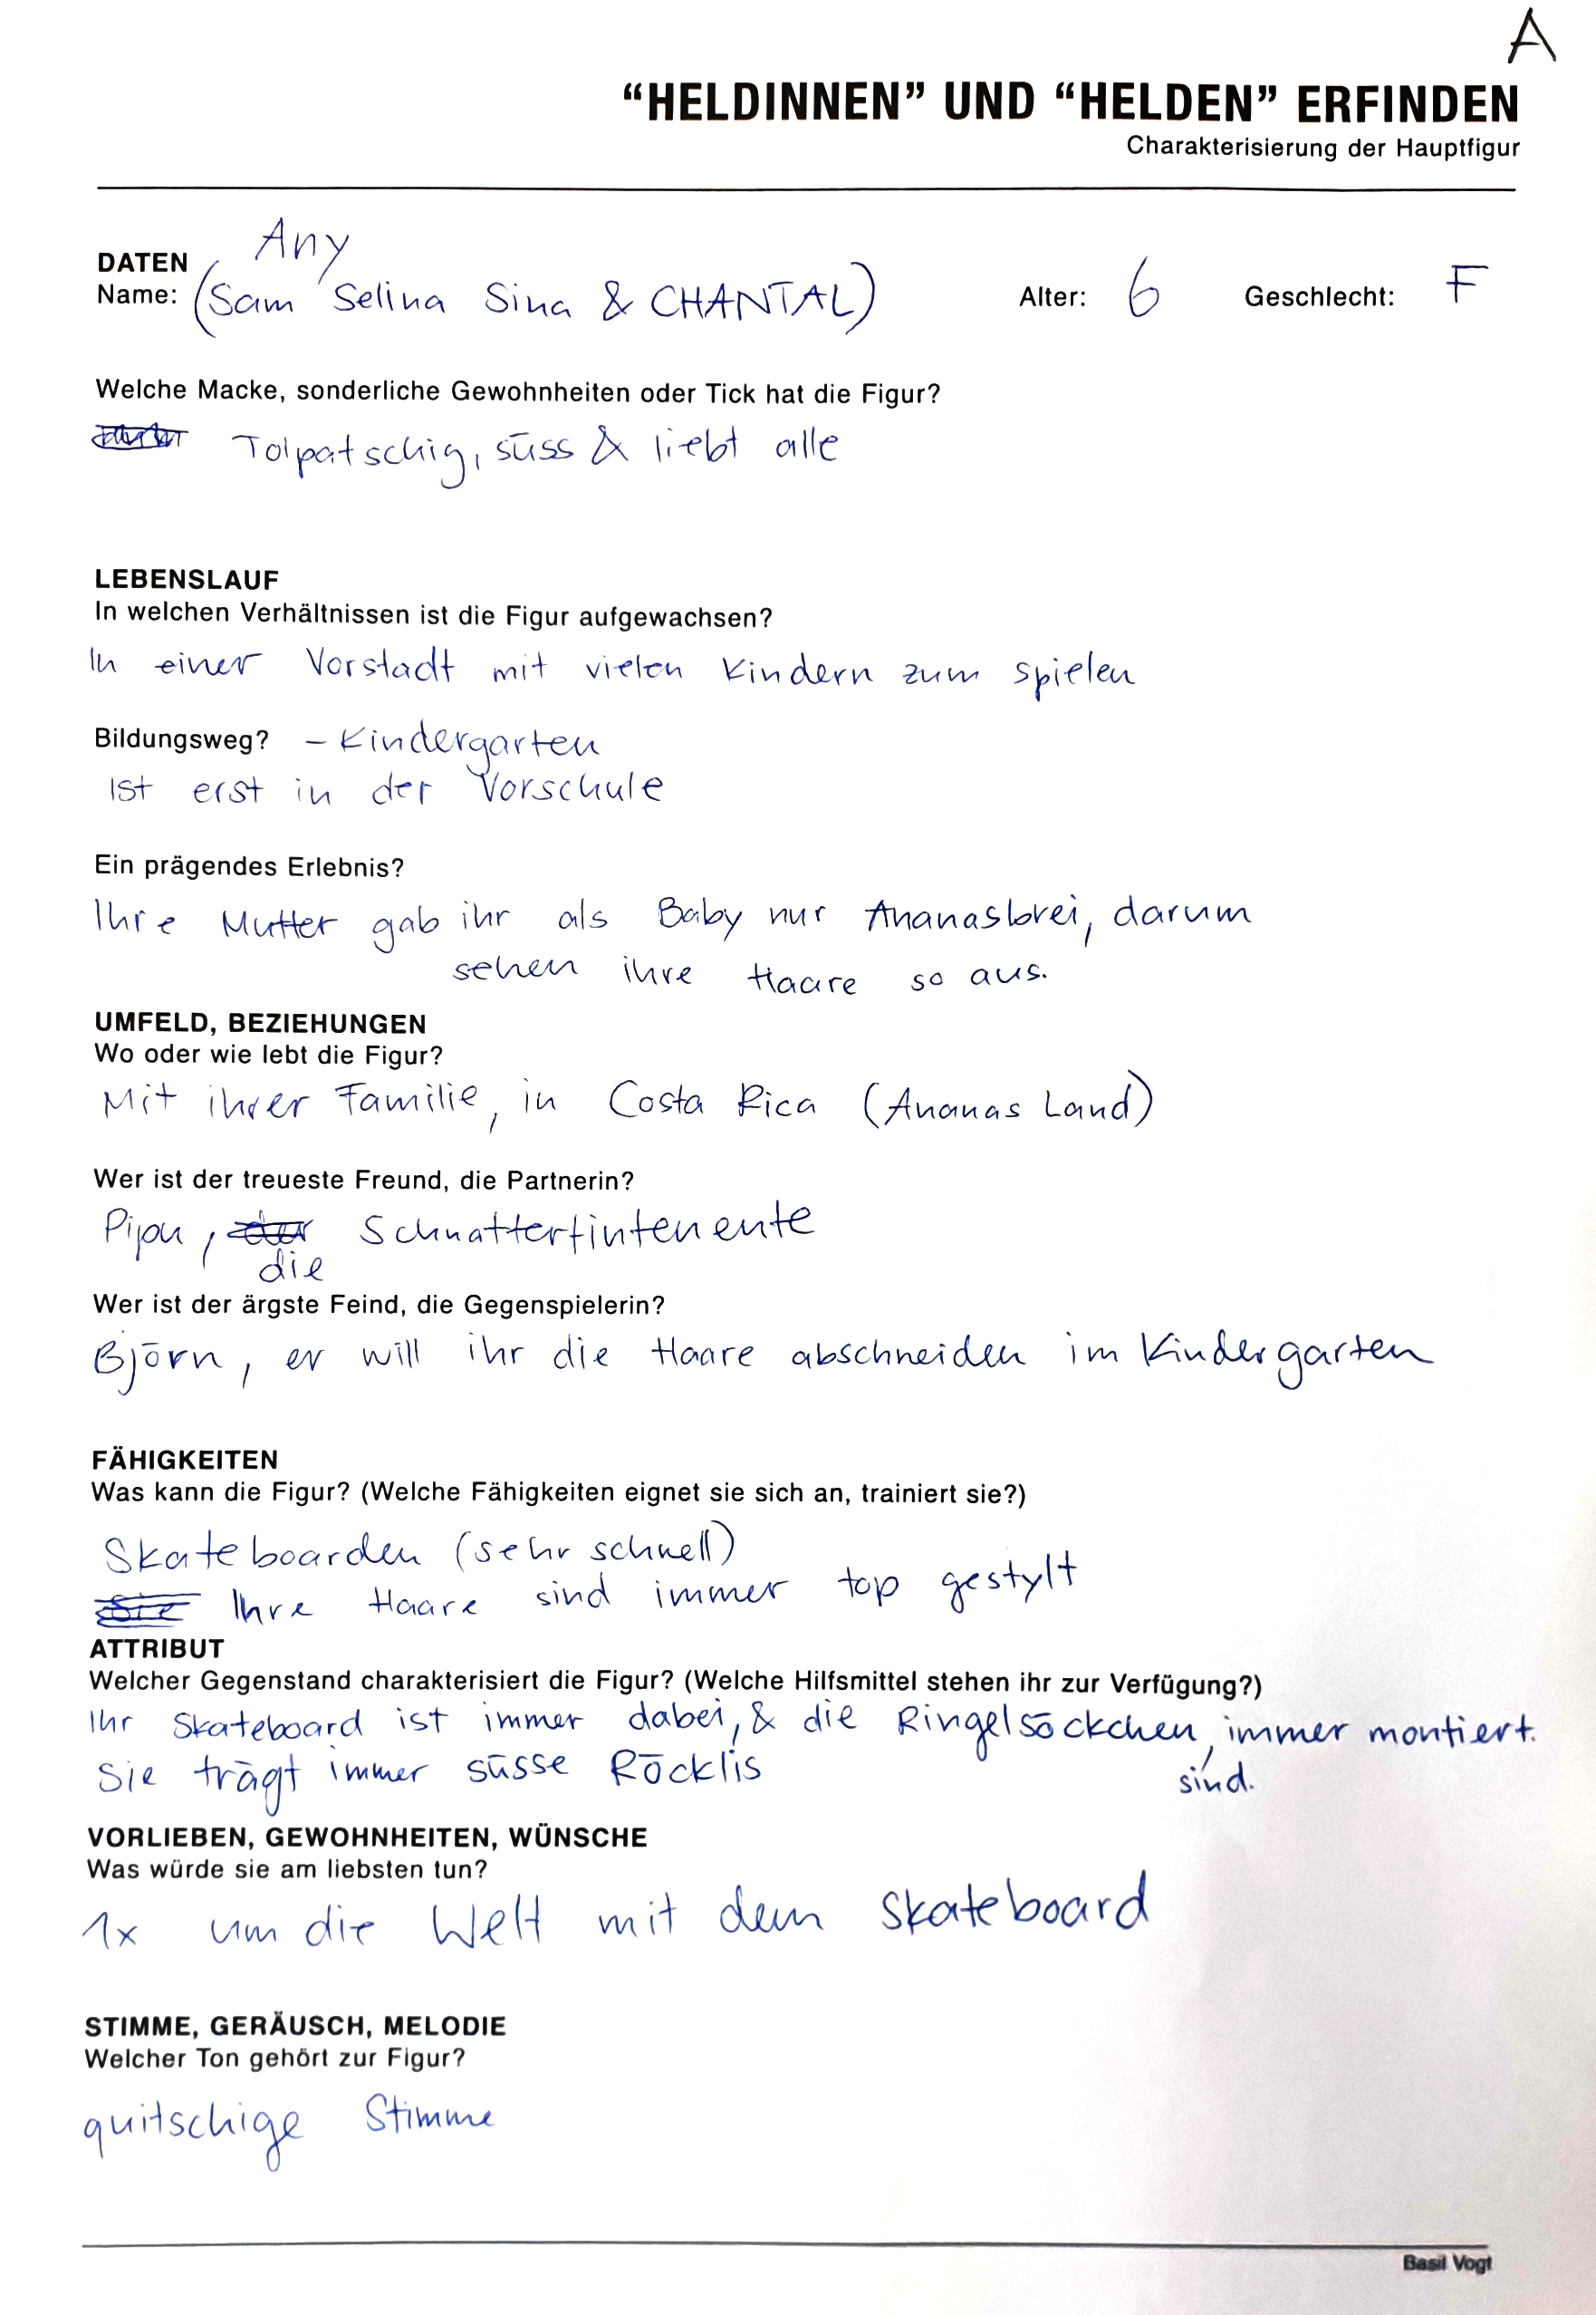 A
“HELDINNEN” UND “HELDEN” ERFINDEN
Charakterisierung der Hauptfigur
Any
DATEN
Name: (Sam Selina Sina & CHANTAL) Alter: 6 Geschlecht: F
Welche Macke, sonderliche Gewohnheiten oder Tick hat die Figur?
Tolpatschig, süss & liebt alle
LEBENSLAUF
In welchen Verhältnissen ist die Figur aufgewachsen?
In einer Vorstadt mit vielen Kindern zum spielen
Bildungsweg? – Kindergarten
Ist erst in der Vorschule
Ein prägendes Erlebnis?
Ihre Mutter gab ihr als Baby nur Ananasbrei, darum
sehen ihre Haare so aus.
UMFELD, BEZIEHUNGEN
Wo oder wie lebt die Figur?
Mit ihrer Familie, in Costa Rica (Ananas Land)
Wer ist der treueste Freund, die Partnerin?
Pijou, Schnattertintenente
die
Wer ist der ärgste Feind, die Gegenspielerin?
Björn, er will ihr die Haare abschneiden im Kindergarten
FÄHIGKEITEN
Was kann die Figur? (Welche Fähigkeiten eignet sie sich an, trainiert sie?)
Skateboarden (sehr schnell)
Sie Ihre Haare sind immer top gestylt
ATTRIBUT
Welcher Gegenstand charakterisiert die Figur? (Welche Hilfsmittel stehen ihr zur Verfügung?)
Ihr Skateboard ist immer dabei, & die Ringelsöckchen, immer montiert.
Sie trägt immer süsse Röcklis sind.
VORLIEBEN, GEWOHNHEITEN, WÜNSCHE
Was würde sie am liebsten tun?
1x um die Welt mit dem Skateboard
STIMME, GERÄUSCH, MELODIE
Welcher Ton gehört zur Figur?
quitschige Stimme
Basil Vogt